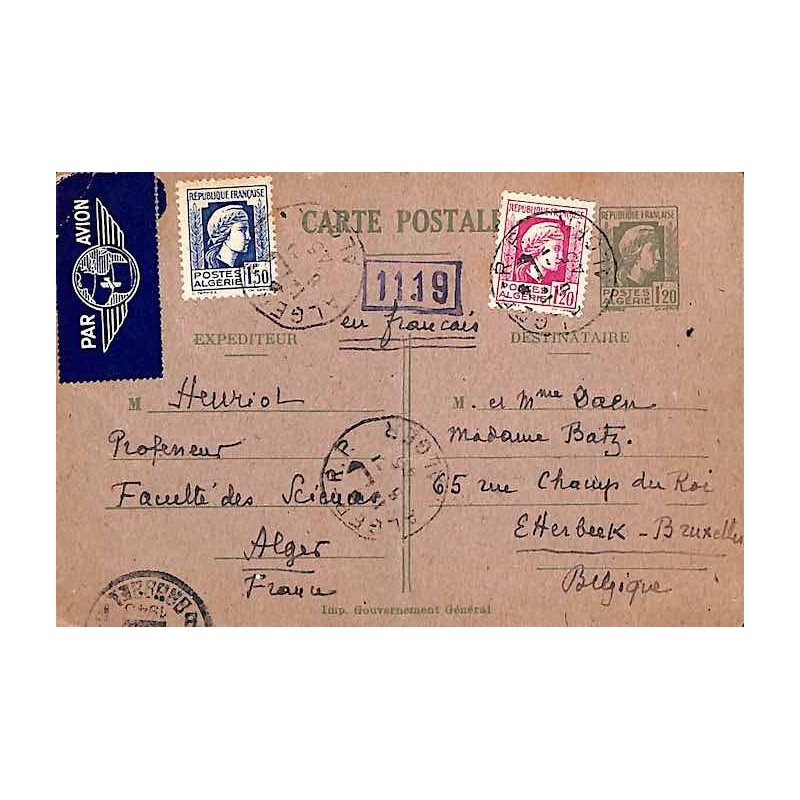 PAR AVION
RÉPUBLIQUE FRANÇAISE
POSTES
ALGÉRIE
1F50
CARTE POSTALE
RÉPUBLIQUE FRANÇAISE
POSTES
ALGÉRIE
1F20
RÉPUBLIQUE FRANÇAISE
POSTES
ALGÉRIE
1F20
1119
en français
EXPÉDITEUR
DESTINATAIRE
M Henriot
Professeur
Faculté des Sciences
Alger
France
M. et Mme Daen
Madame Batz.
65 rue Champ du Roi
Etterbeek - Bruxelles
Belgique
ALGER R.P.
Imp. Gouvernement Général